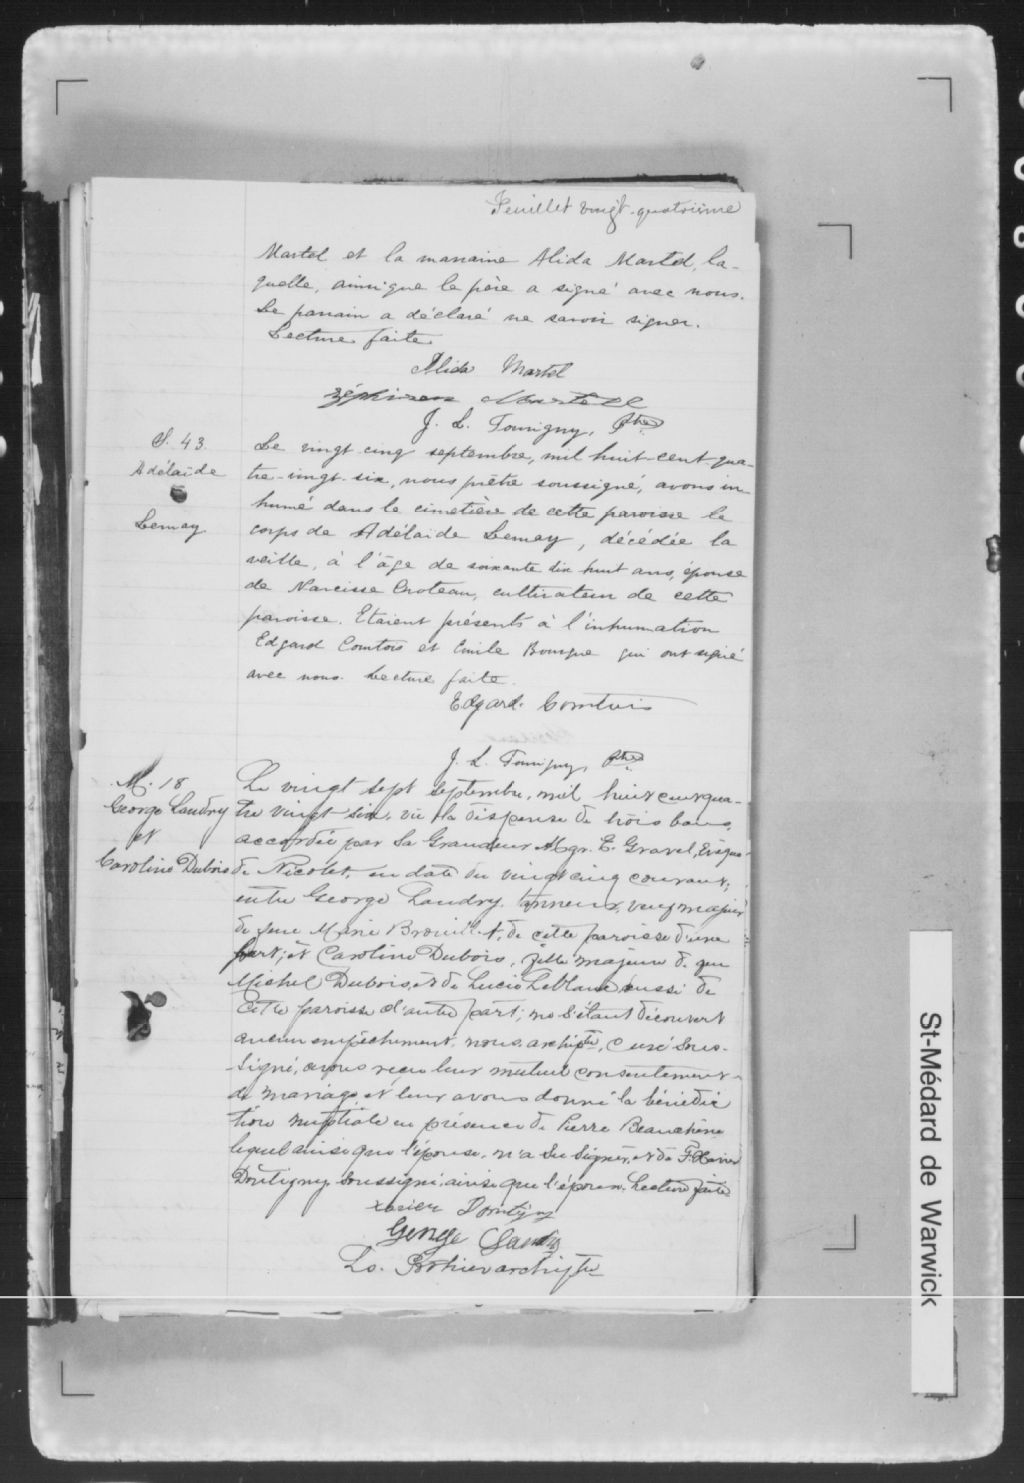 Feuillet vingt-quatrième
Martel et la marraine Alida Martel, la-
quelle, ainsi que le père a signé avec nous.
Le parrain a déclaré ne savoir signer.
Lecture faite.
Alida Martel
Martell
J. L. Tourigny, Ptre
S. 43.
Adélaïde
Lemay
Le vingt cinq septembre, mil huit-cent-qua-
tre-vingt-six, nous prêtre soussigné, avons in-
humé dans le cimetière de cette paroisse le
corps de Adélaïde Lemay, décédée la
veille, à l'âge de soixante dix huit ans, épouse
de Narcisse Croteau, cultivateur de cette
paroisse. Etaient présents à l'inhumation
Edgard Comtois et Emile Bourque qui ont signé
avec nous. Lecture faite.
Edgard Comtois
J. L. Tourigny, Ptre
M. 18
George Landry
et
Caroline Dubois
Le vingt sept septembre, mil huit cent qua-
tre vingt six, vu la dispense de trois bans,
accordée par Sa Grandeur Mgr. E. Gravel, Evêque
de Nicolet, en date du vingt cinq courant;
entre George Landry, tanneur, veuf majeur
de feue Marie de cette paroisse d'une
part; et Caroline Dubois, fille majeure de feu
Michel Dubois, et de Lucie LeBlanc aussi de
cette paroisse d'autre part; ne s'étant découvert
aucun empêchement, nous, archiptre, Curé sous-
signé, avons reçu leur mutuel consentement
de mariage, et leur avons donné la bénédic
tion nuptiale en présence de Pierre Beauchêne
lequel ainsi que l'épouse, n'a su signer, et de F. Xavier
Doutigny soussigné, ainsi que l'époux. Lecture faite
Xavier Doutigny
George Landry
Ls. Pothier archiptre
St-Médard de Warwick